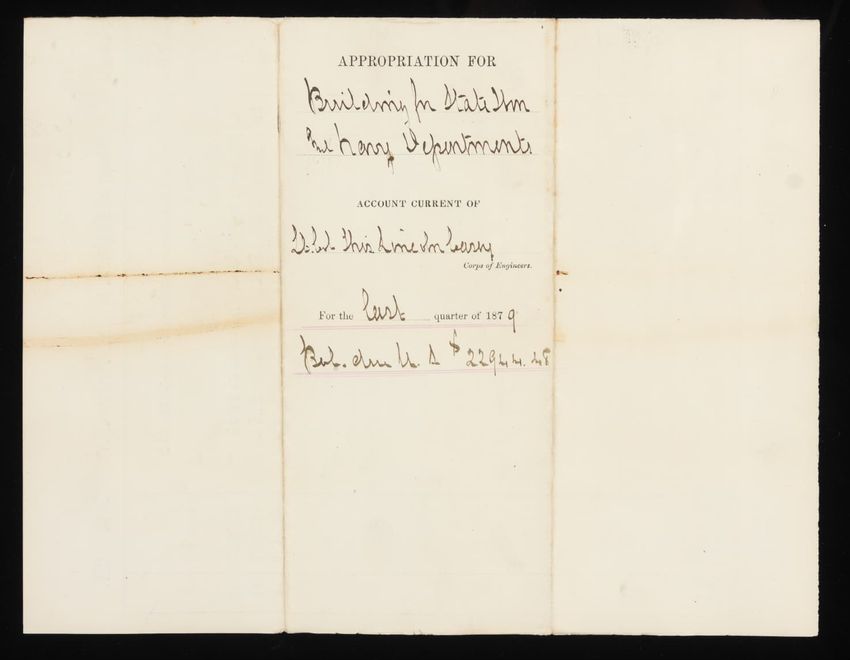 APPROPRIATION FOR
Building for State War
and Navy Departments
ACCOUNT CURRENT OF
Lt. Col. Thos. Lincoln Casey
Corps of Engineers.
For the last quarter of 1879
Bal. due U. S $22944.48